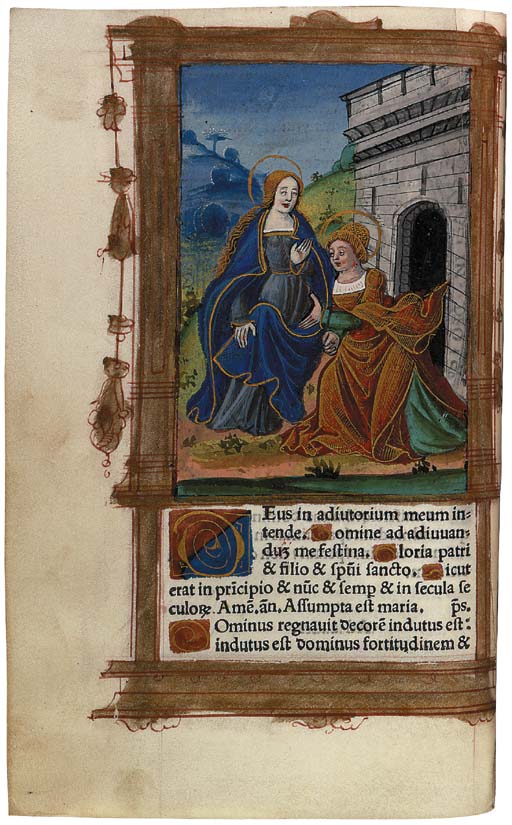 DEus in adiutorium meum in-
tende. Domine ad adiuuan-
duʒ me festina. Gloria patri
& filio & spūi sancto. Sicut
erat in prīcipio & nūc & semp & in secula se
culoꝝ. Amē. ān. Assumpta est maria. p̄s.
DOminus regnauit decorē indutus est:
indutus est dominus fortitudinem &